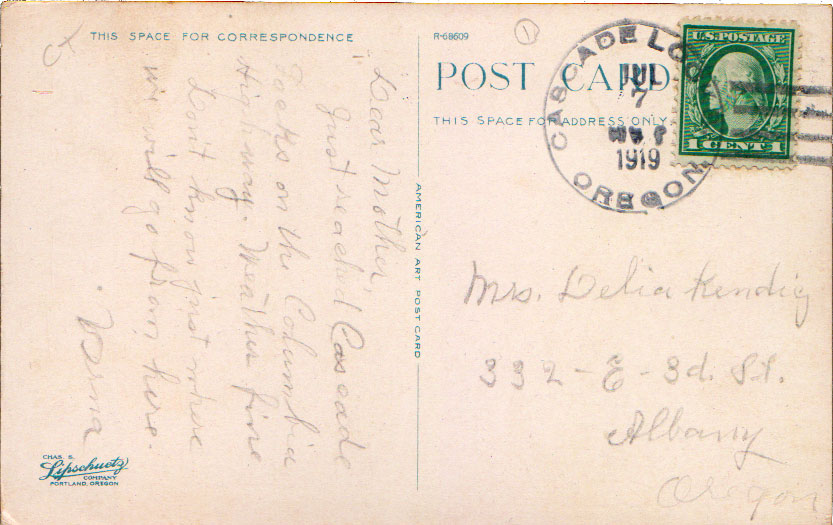 THIS SPACE FOR CORRESPONDENCE
Dear Mother,
Just reach'd Cascade
Locks on the Columbia
Highway. Weather fine
Don't know just where
we will go from here.
Verna
CHAS. S.
Lipschuetz
COMPANY
PORTLAND, OREGON
AMERICAN ART POST CARD
R-68609
1
POST CARD
THIS SPACE FOR ADDRESS ONLY
CASCADE LOCKS
JUL
7
1919
OREGON
U.S. POSTAGE
1 CENT 1
Mrs. Delia Kendig
332-E-3d. St.
Albany
Oregon